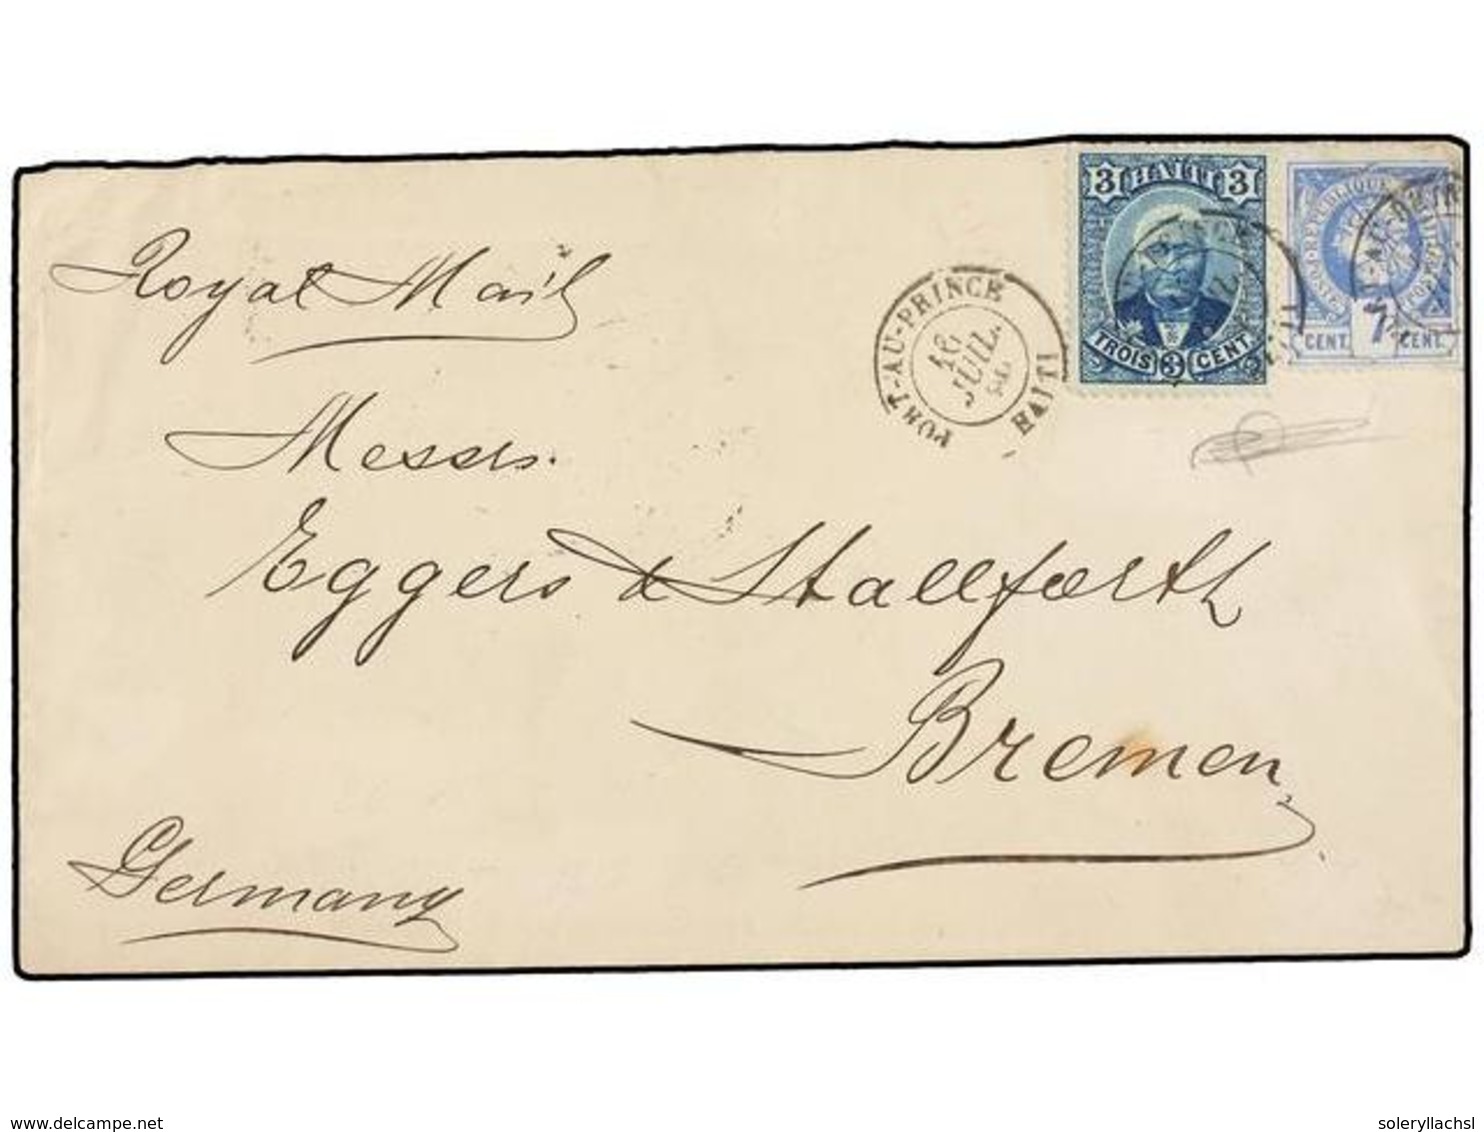 3 HAITI 3
TROIS 3 CENT.
REPUBLIQUE
CENT. 7 CENT.
PORT-AU-PRINCE
JUIL.
HAITI
Royal Mail
Messrs.
Eggers & Stallforth
Bremen
Germany
www.delcampe.net
soleryllachsl